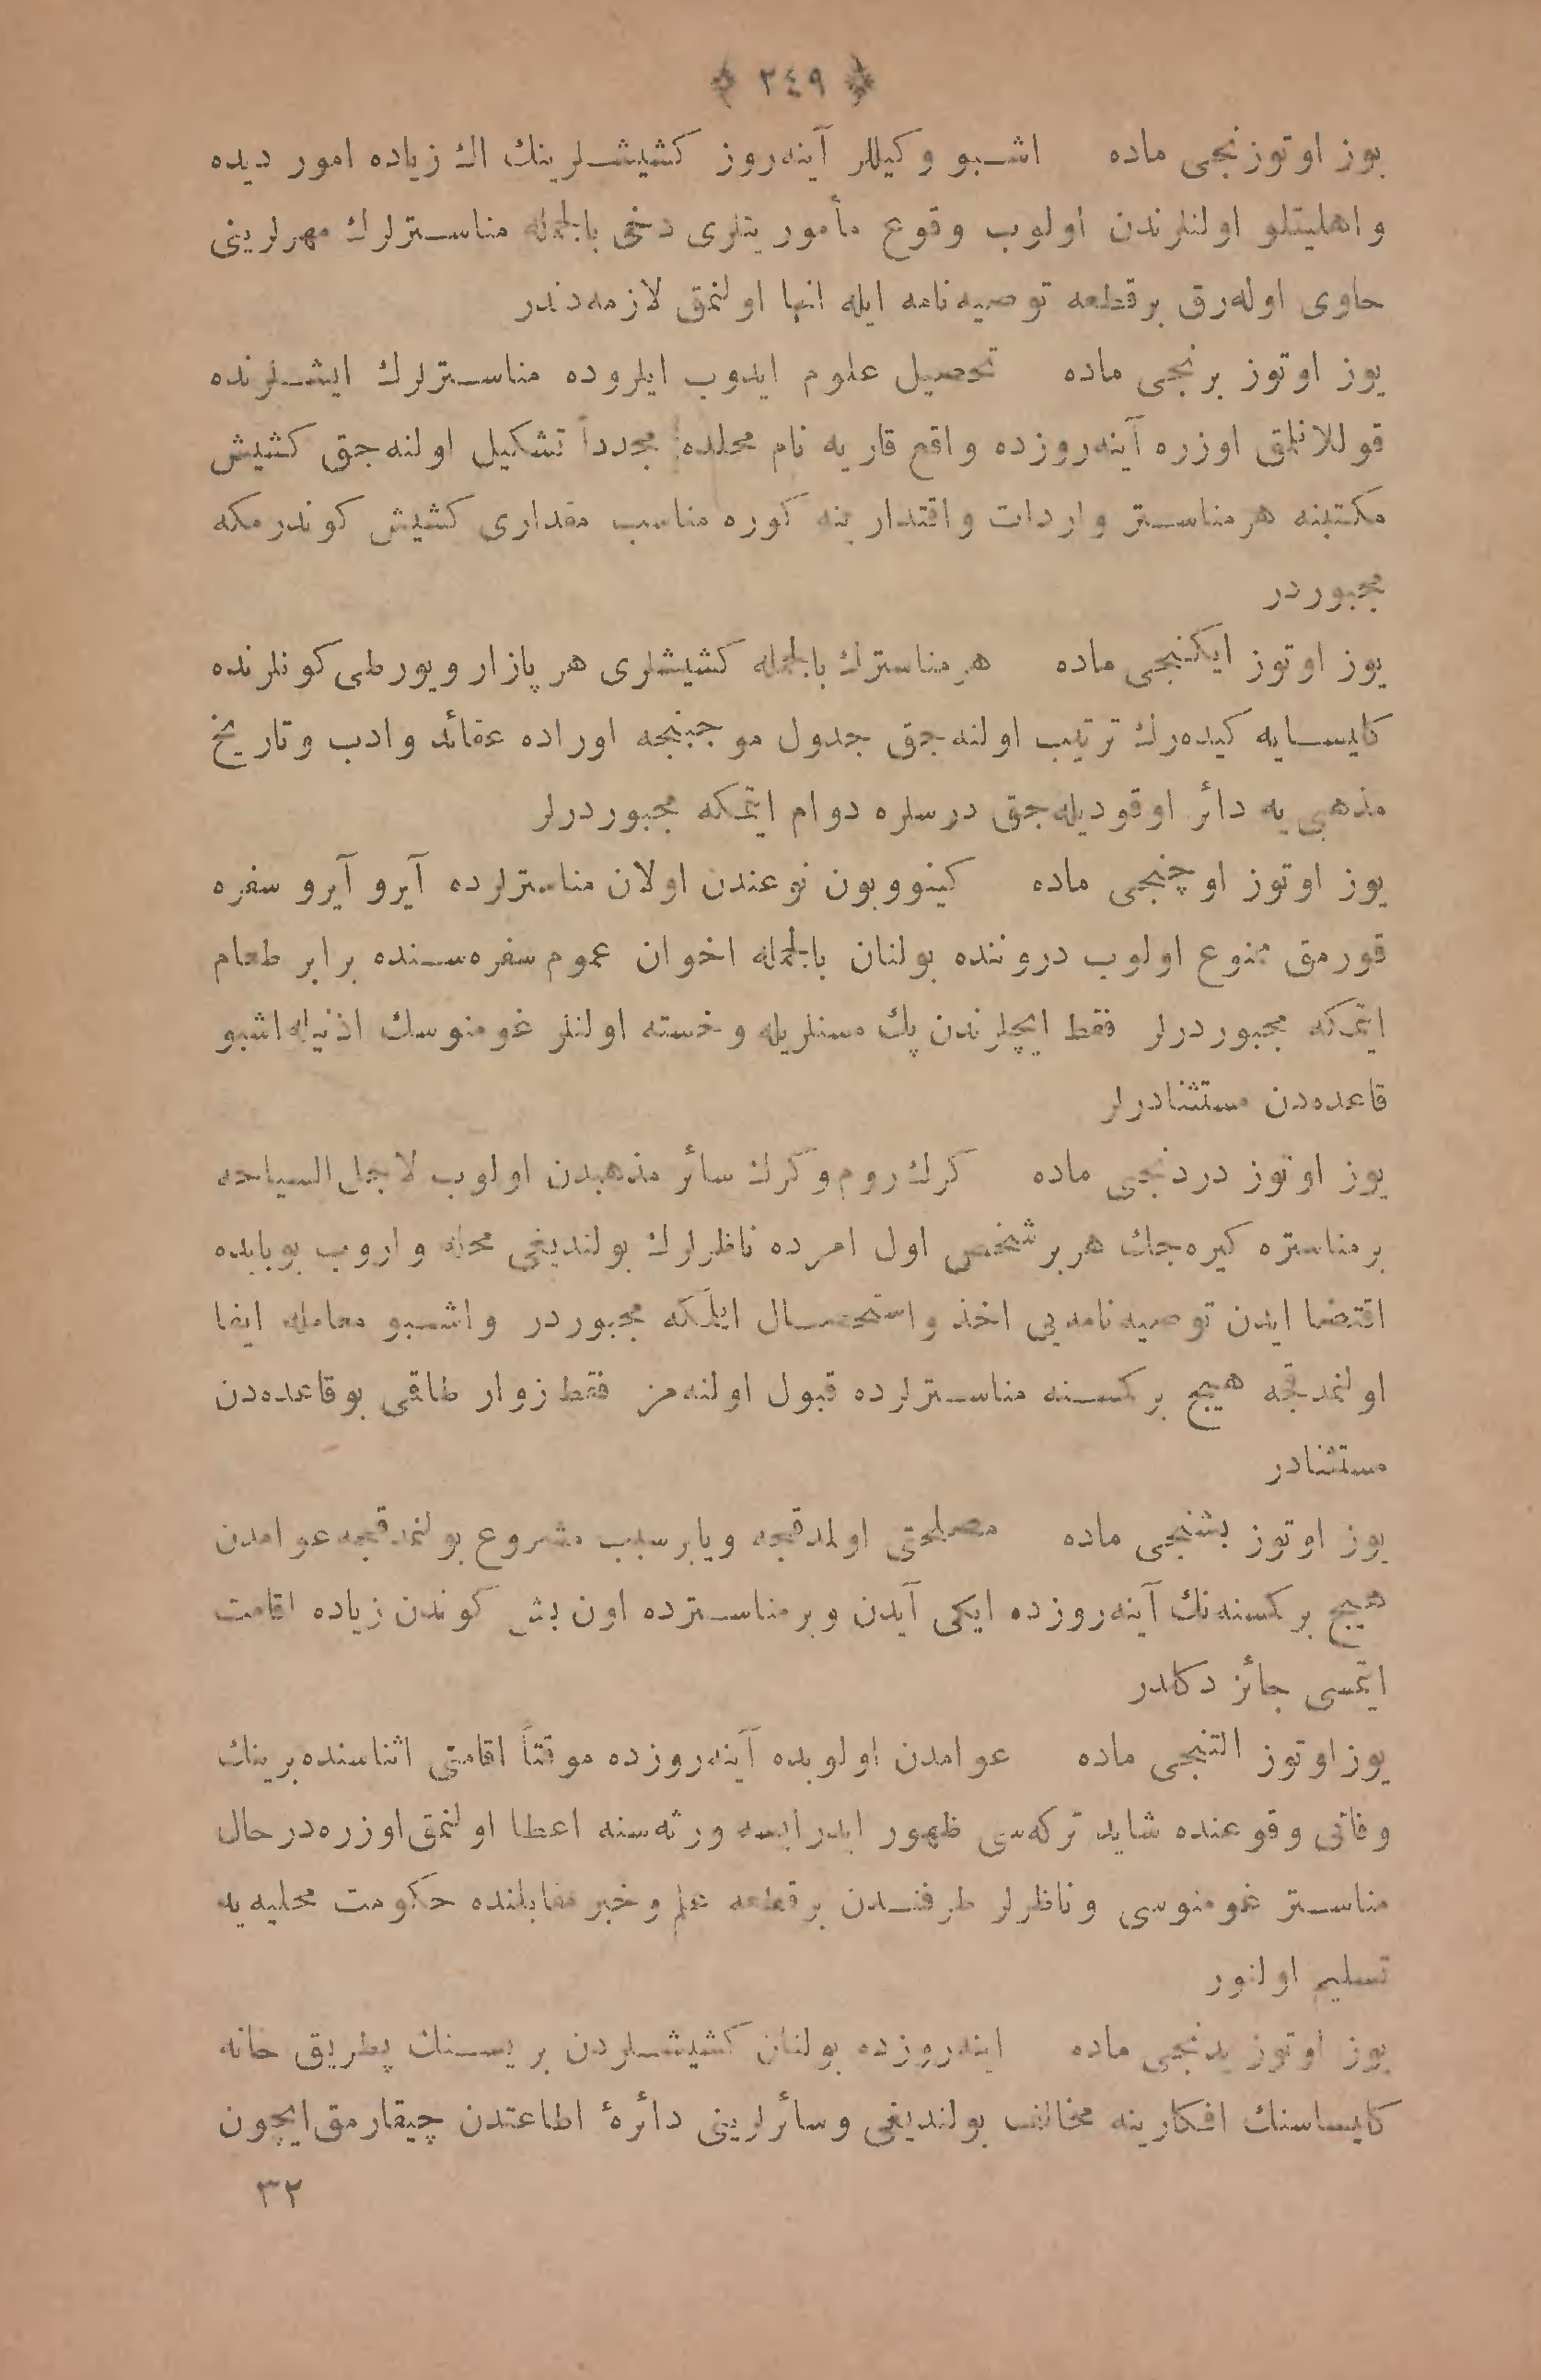 ﴿ ٢٤٩ ﴾
یوز اوتوزنجی ماده اشبو وکیللر آینه‌روز کشیشلرینك اك زیاده امور دیده
واهلیتلو اولنلرندن اولوب وقوع مأموریتلری دخی بالجمله مناسترلرك مهرلرینی
حاوی اوله‌رق برقطعه توصیه‌نامه ایله انها اولنمق لازمه‌دندر
یوز اوتوز برنجی ماده تحصیل علوم ایدوب ایلروده مناسترلرك ایشلرنده
قوللانلمق اوزره آینه‌روزده واقع قاریه نام محلده مجدداً تشکیل اولنه‌جق کشیش
مکتبنه هرمناستر واردات واقتدارینه کوره مناسب مقداری کشیش کوندرمکه
مجبوردر
یوز اوتوز ایکنجی ماده هرمناسترك بالجمله کشیشلری هر پازار ویورطی کونلرنده
کلیسایه کیده‌رك ترتیب اولنه‌جق جدول موجبنجه اوراده عقائد وادب وتاریخ
مذهبی یه دائر اوقودیله‌جق درسلره دوام ایتمکه مجبوردرلر
یوز اوتوز اوچنجی ماده کینوویون نوعندن اولان مناسترلرده آیرو آیرو سفره
قورمق ممنوع اولوب دروننده بولنان بالجمله اخوان عموم سفره‌سنده برابر طعام
ایتمکه مجبوردرلر فقط ایچلرندن پك مسنلریله وخسته اولنلر غومنوسك اذنیله اشبو
قاعده‌دن مستثنادرلر
یوز اوتوز دردنجی ماده کرك روم وکرك سائر مذهبدن اولوب لاجل السیاحه
برمناستره کیره‌جك هربر شخص اول امرده ناظرلرك بولندیغی محله واروب بوبابده
اقتضا ایدن توصیه‌نامه‌یی اخذ واستحصال ایلمکه مجبوردر واشبو معامله ایفا
اولنمدقجه هیچ برکمسنه مناسترلرده قبول اولنه‌مز فقط زوار طاقمی بوقاعده‌دن
مستثنادر
یوز اوتوز بشنجی ماده مصلحتی اولمدقجه ویابر سبب مشروع بولنمدقجه عوامدن
هیچ برکمسنه‌نك آینه‌روزده ایکی آیدن وبرمناسترده اون بش کوندن زیاده اقامت
ایتمسی جائز دکلدر
یوز اوتوز التنجی ماده عوامدن اولوبده آینه‌روزده موقتاً اقامتی اثناسنده برینك
وفاتی وقوعنده شاید ترکه‌سی ظهور ایدرایسه ورثه‌سنه اعطا اولنمق اوزره درحال
مناستر غومنوسی وناظرلر طرفندن برقطعه علم وخبر مقابلنده حکومت محلیه‌یه
تسلیم اولنور
یوز اوتوز یدنجی ماده اینه‌روزده بولنان کشیشلردن بریسنك پطریق خانه
کلیساسنك افکارینه مخالف بولندیغی وسائرلرینی دائرهٔ اطاعتدن چیقارمق ایچون
٣٢